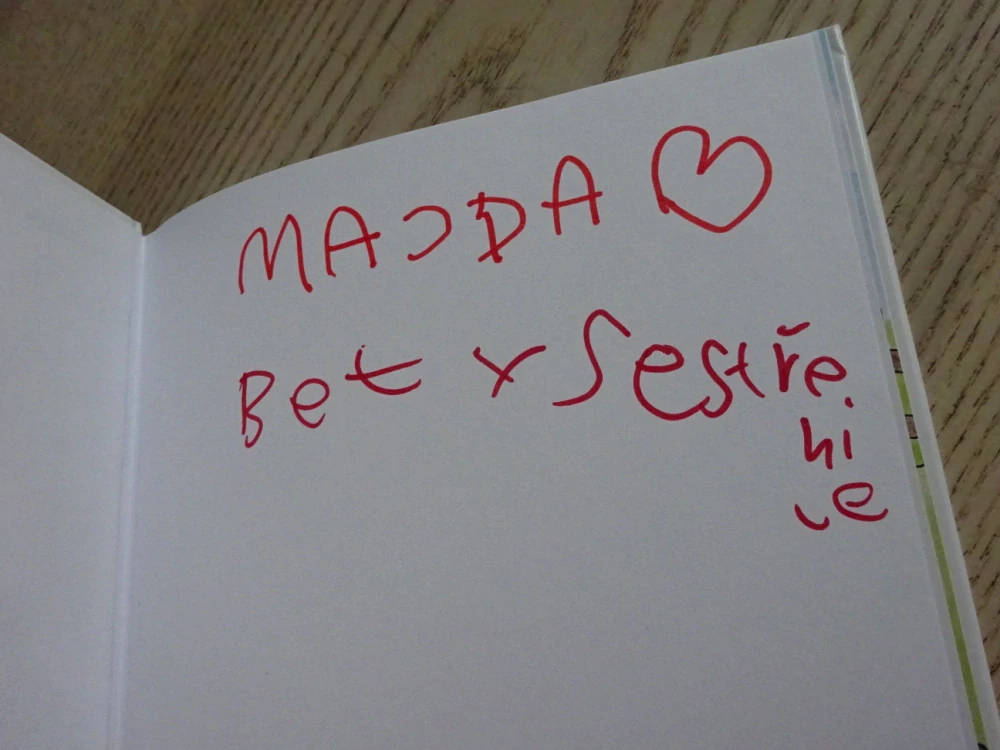 MAJDA
Bet x Sestře
ni
ce